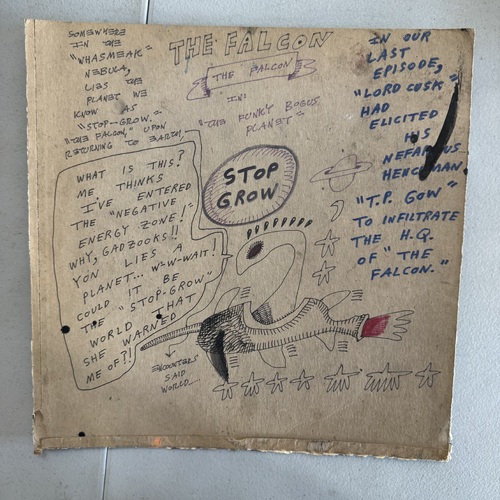 THE FALCON
SOMEWHERE
IN THE
"WHASMEAK"
NEBULA,
LIES THE
PLANET WE
KNOW AS
"STOP-GROW."
"THE FALCON," UPON
RETURNING TO EARTH,
THE FALCON
IN:
"THE FUNKY BOGUS
PLANET"
IN OUR
LAST
EPISODE,
"LORD CUSK"
HAD
ELICITED
HIS
NEFARIOUS
HENCHMAN
"T.P. GOW"
TO INFILTRATE
THE H.Q.
OF "THE
FALCON."
WHAT IS THIS?
ME THINKS
I'VE ENTERED
THE "NEGATIVE
ENERGY ZONE!"
WHY, GADZOOKS!!
YON LIES A
PLANET... W-W-WAIT!
COULD IT BE
THE "STOP-GROW"
WORLD THAT
SHE WARNED
ME OF?!
STOP
GROW
ENCOUNTERS
SAID
WORLD...